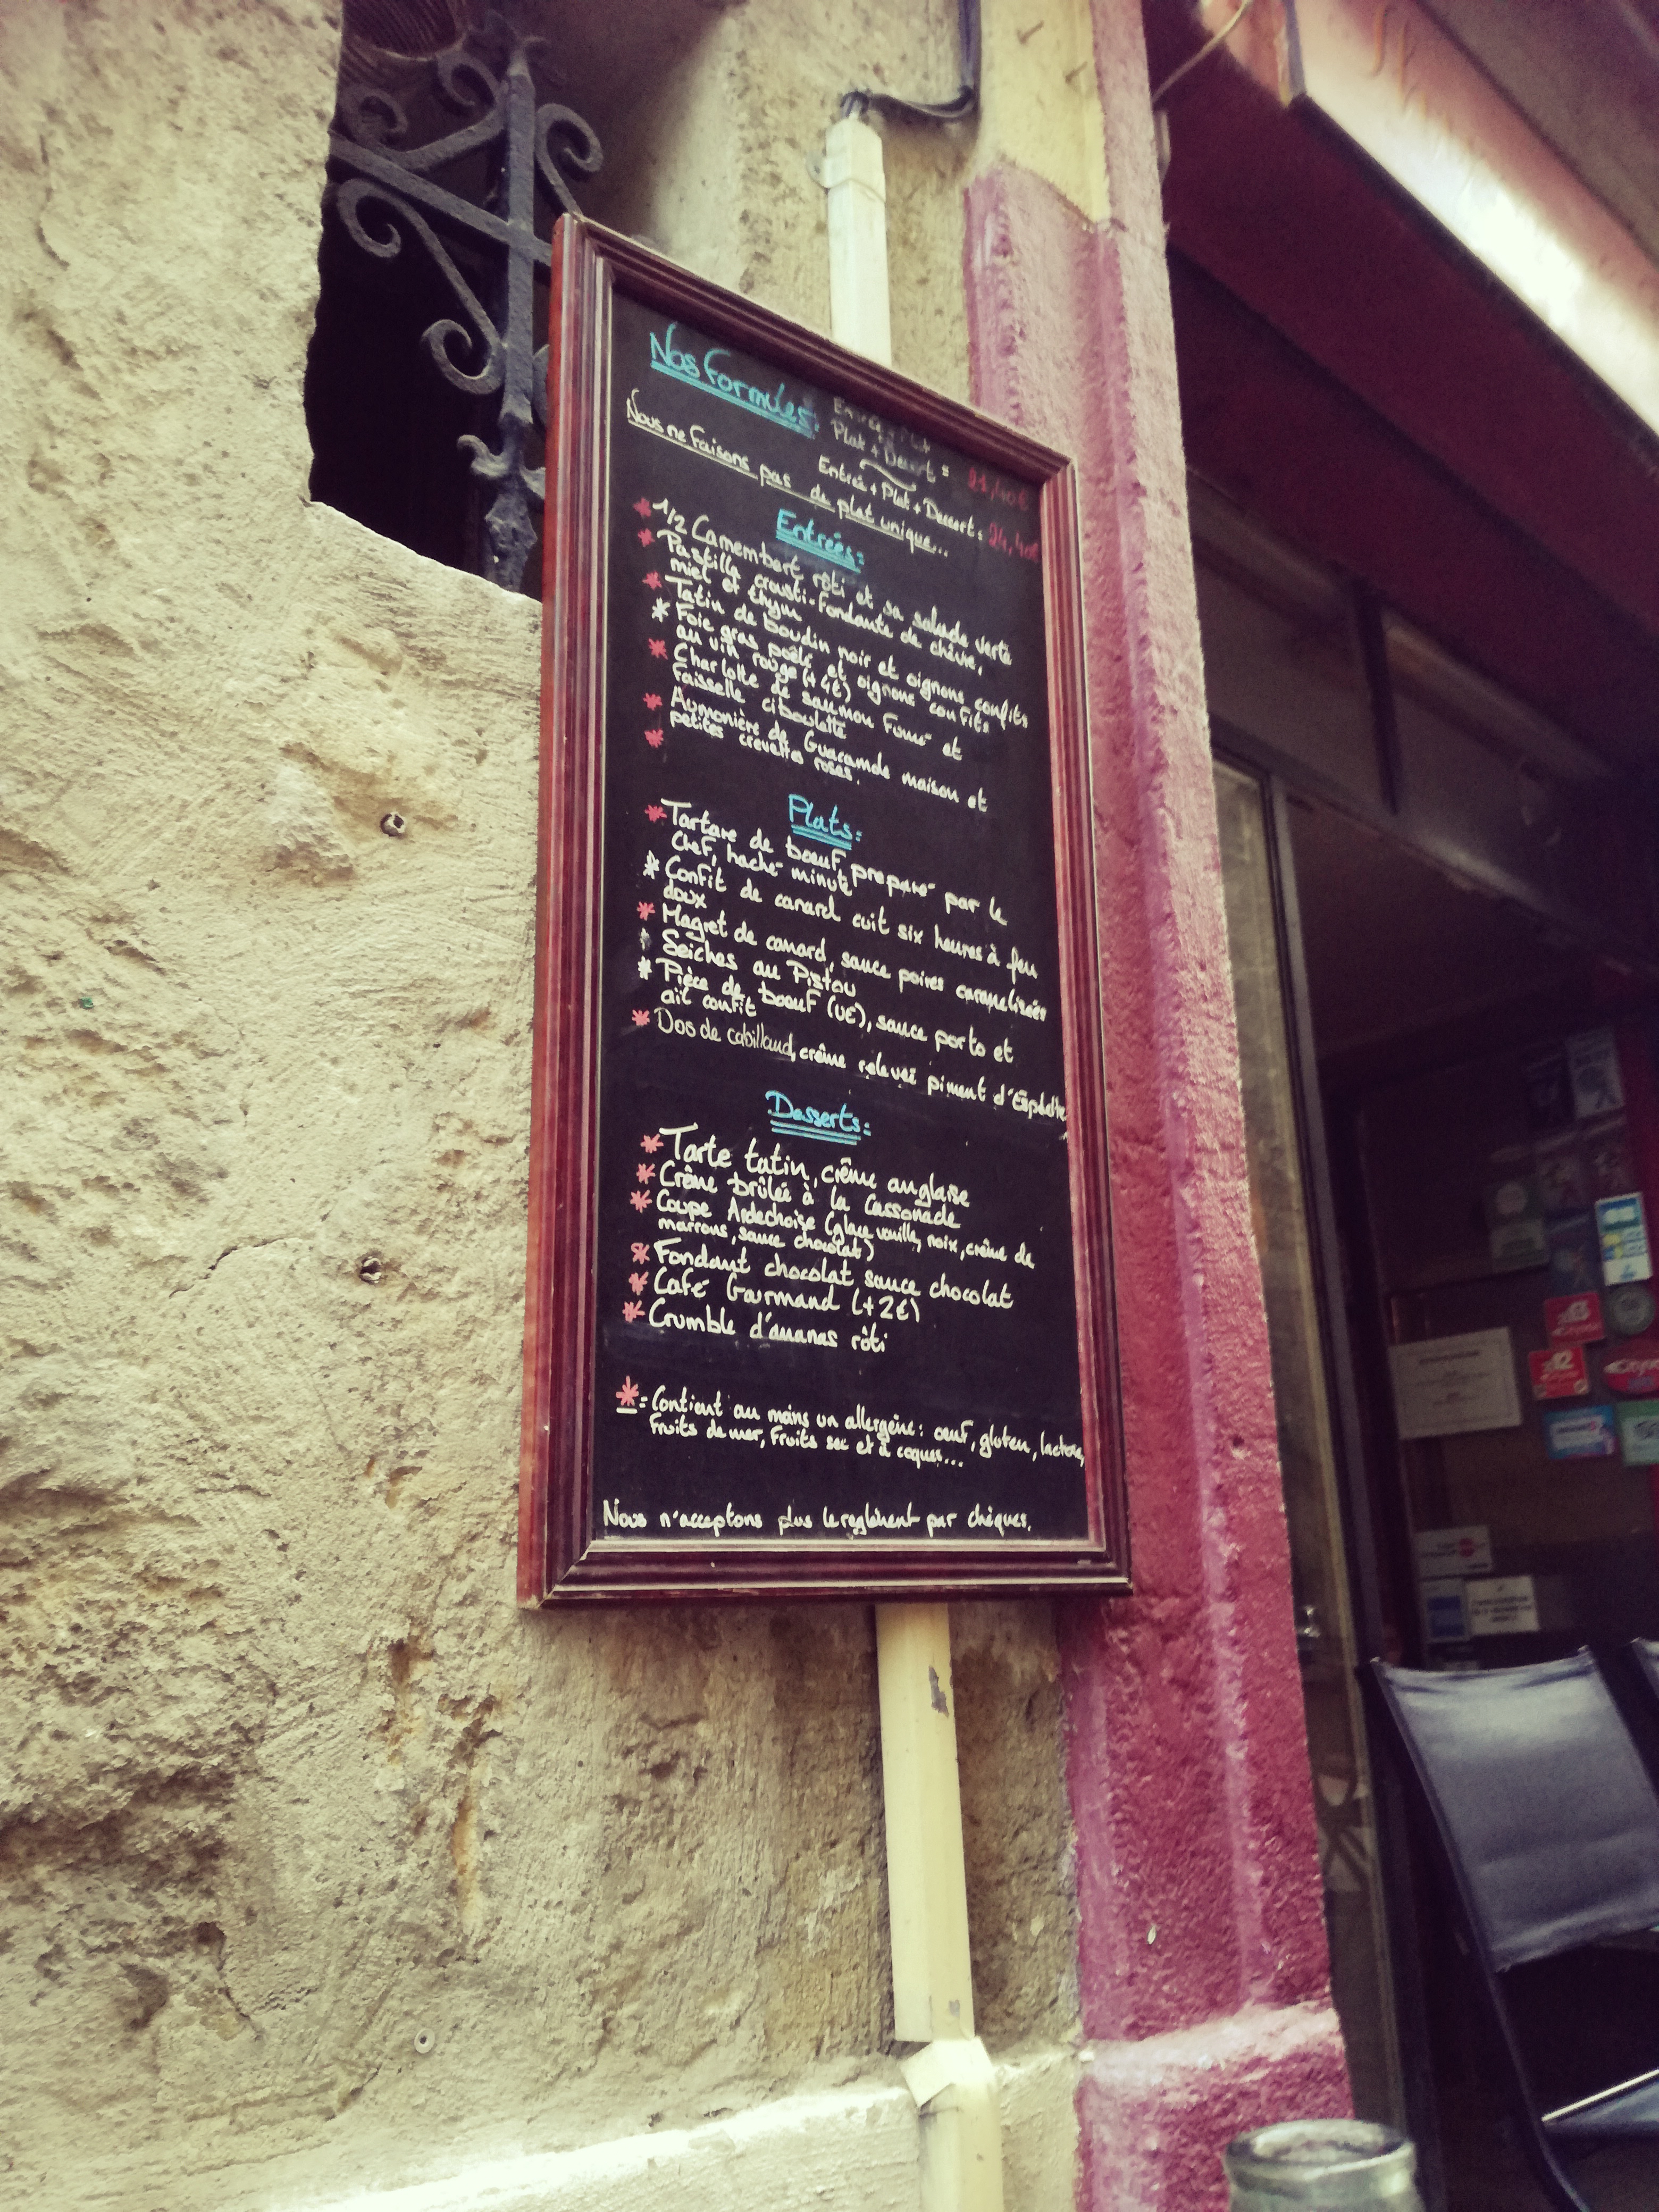 Nos formules:
Entrée + Plat
Plat + Dessert = 21,40€
Entrée + Plat + Dessert = 24,40€
Nous ne faisons pas de plat unique...
Entrées:
* 1/2 Camembert rôti et sa salade verte
* Pastilla crousti-fondante de chèvre,
miel et thym
* Tatin de boudin noir et oignons confits
* Foie gras poêlé et oignons confits
au vin rouge (+4€)
* Charlotte de saumon fumé et
faisselle ciboulette
* Aumonière de Guacamole maison et
* petites crevettes roses.
Plats:
* Tartare de bœuf, préparé par le
Chef, haché minute
* Confit de canard cuit six heures à feu
doux
* Magret de canard, sauce poires caramélisées
* Seiches au Pistou
* Pièce de boeuf (UE), sauce porto et
ail confit
* Dos de cabillaud, crême relevée piment d'Espelette
Desserts:
* Tarte tatin, crême anglaise
* Crême brûlée à la Cassonade
* Coupe Ardechoise (glace vanille, noix, crême de
marrons, sauce chocolat)
* Fondant chocolat sauce chocolat
* Café Gourmand (+2€)
* Crumble d'ananas rôti
* = Contient au moins un allergène: œuf, gluten, lactose,
fruits de mer, fruits sec et à coques...
Nous n'acceptons plus le reglèment par chèques.